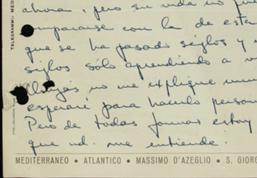 ahora, pero su vida no pue
compararse con la de esta
que se ha pasado siglos y
siglos sólo aprendiendo a v
no me explique
esperaré para hacerlo person
Pero de todas formas estoy
que ud. me entiende.
MEDITERRANEO • ATLANTICO • MASSIMO D'AZEGLIO • S. GIORG
TELEGRAMMI: MED